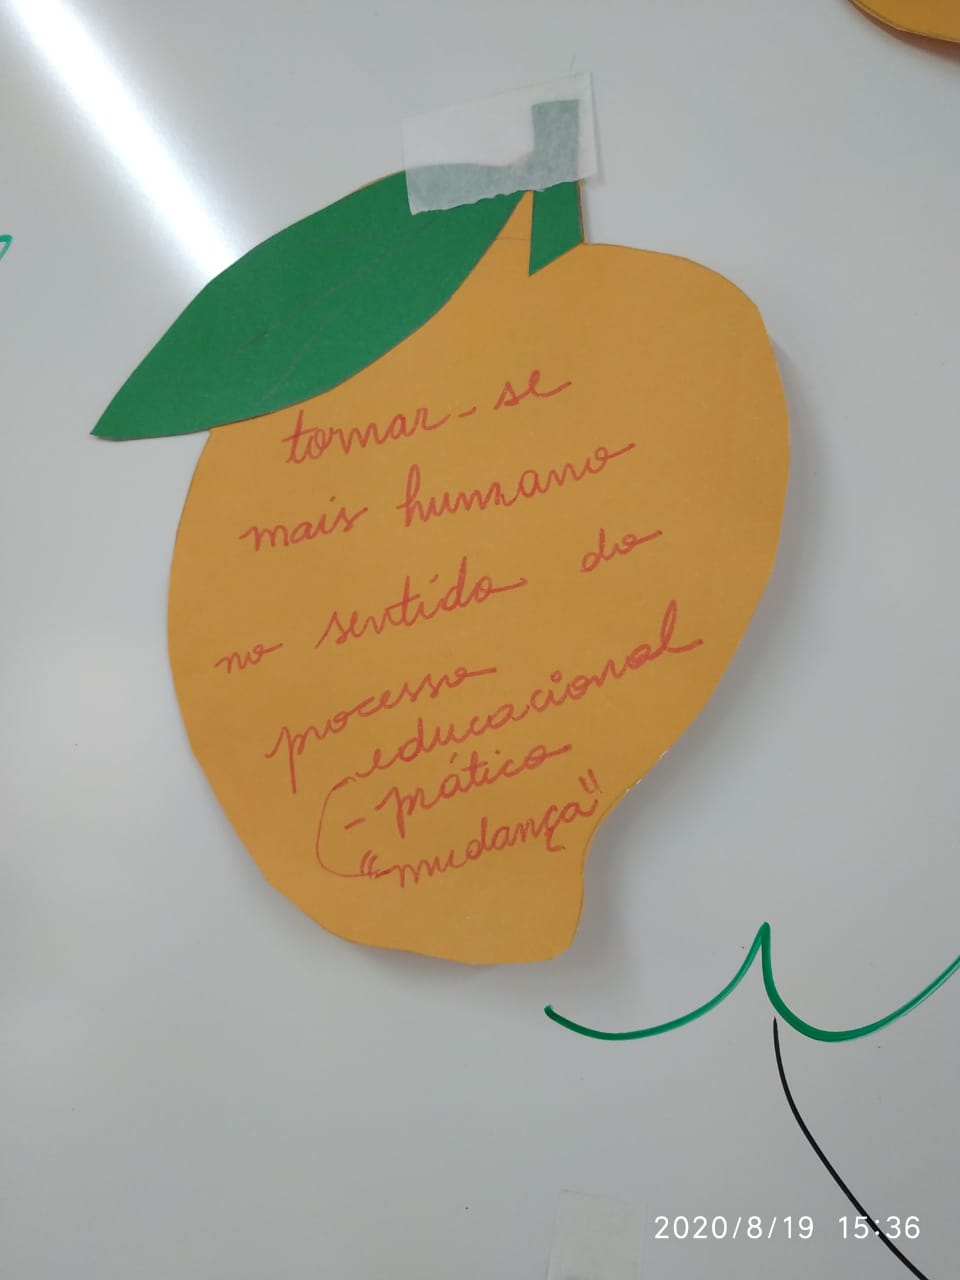 tornar-se
mais humano
no sentido do
processo
educacional
- prático
"mudança"
2020/8/19 15:36